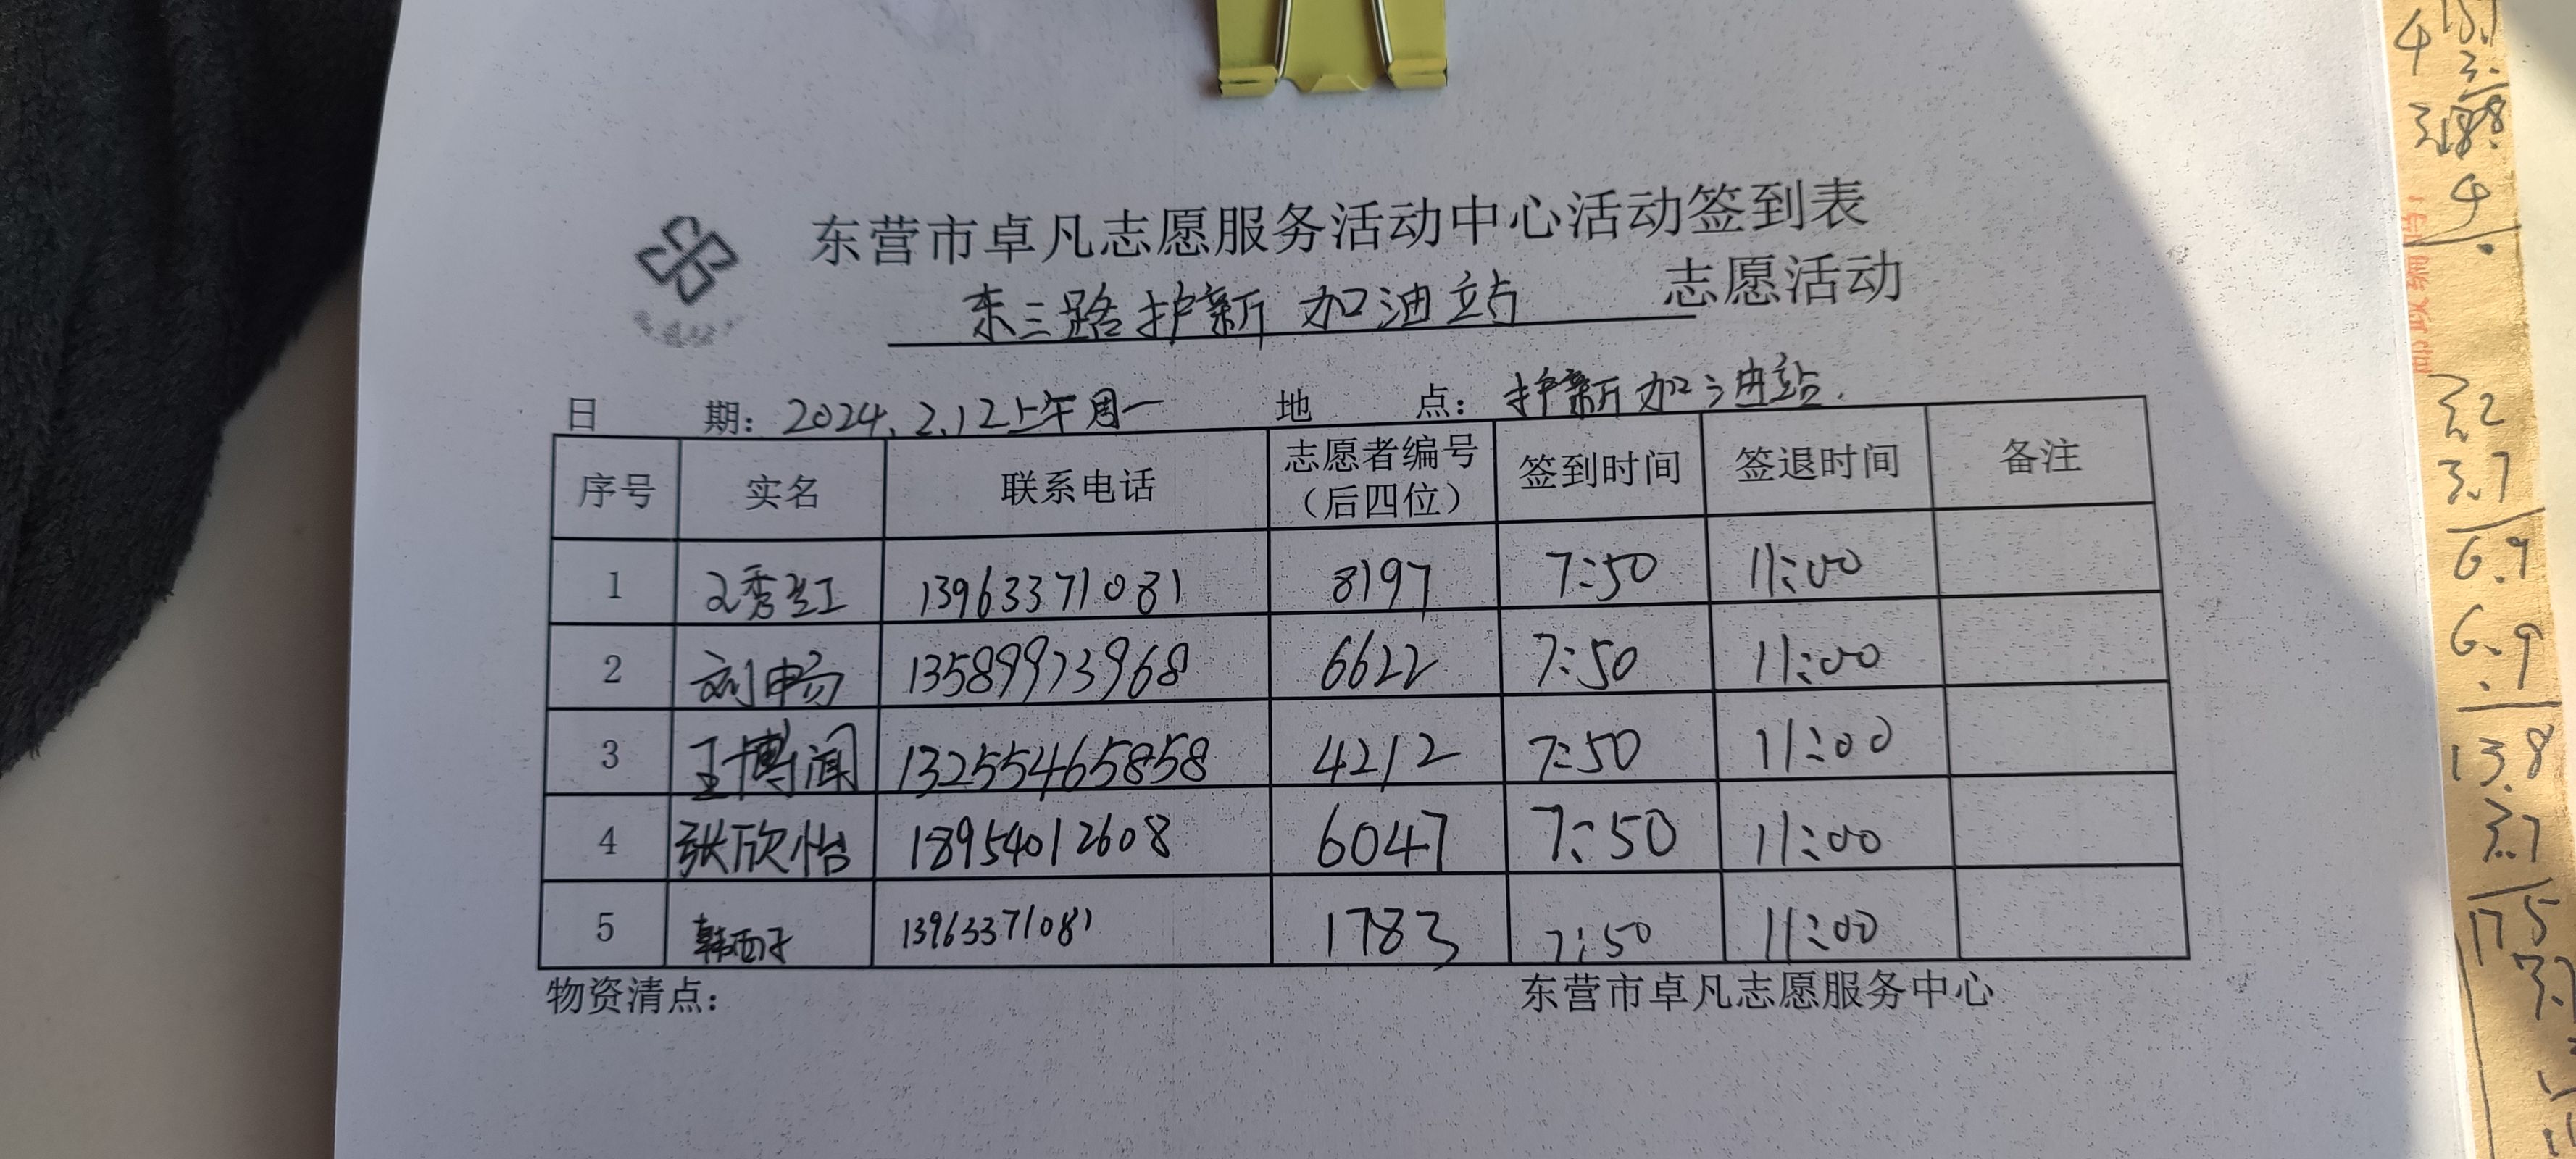 东营市卓凡志愿服务活动中心活动签到表
东三路护新加油站 志愿活动
日 期：2024.2.12上午周一 地 点：护新加油站.
序号 实名 联系电话 志愿者编号（后四位） 签到时间 签退时间 备注
1 秀红 13963371081 8197 7:50 11:00
2 刘畅 13589973968 6622 7:50 11:00
3 王博闻 13255465858 4212 7:50 11:00
4 张欣怡 18954012608 6047 7:50 11:00
5 韩西子 13963371081 1783 7:50 11:00
物资清点： 东营市卓凡志愿服务中心
4
4
3.2
3.7
6.9
6.9
13.8
3.7
17.5